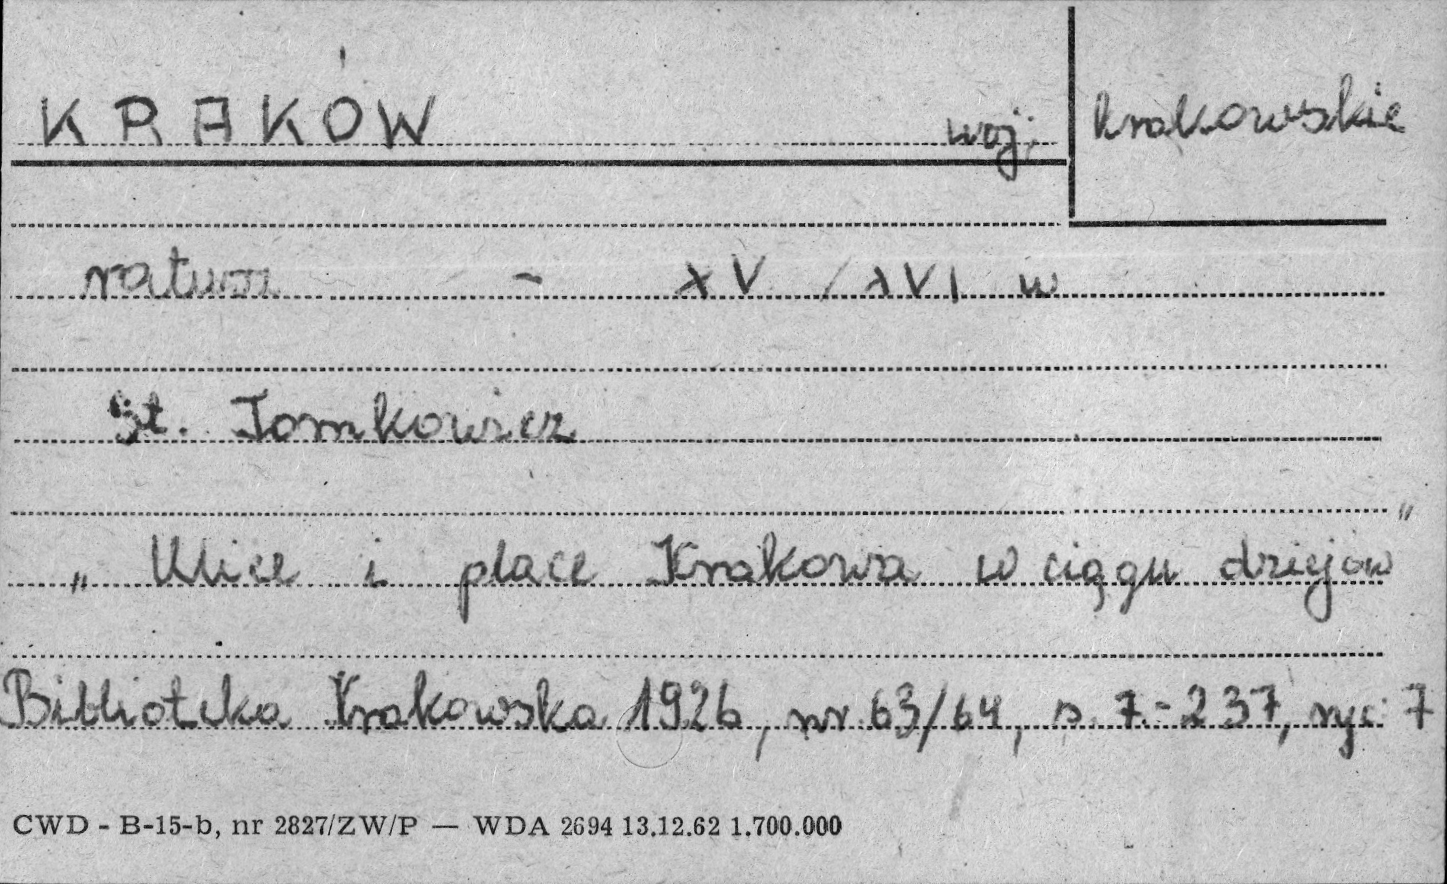 KRAKÓW woj. krakowskie
ratusz - XV / XVI w
St. Tomkowicz
„Ulice i place Krakowa w ciągu dziejów"
Biblioteka Krakowska 1926, nr 63/64, s. 7-237, ryc 7
CWD - B-15-b, nr 2827/ZW/P — WDA 2694 13.12.62 1.700.000